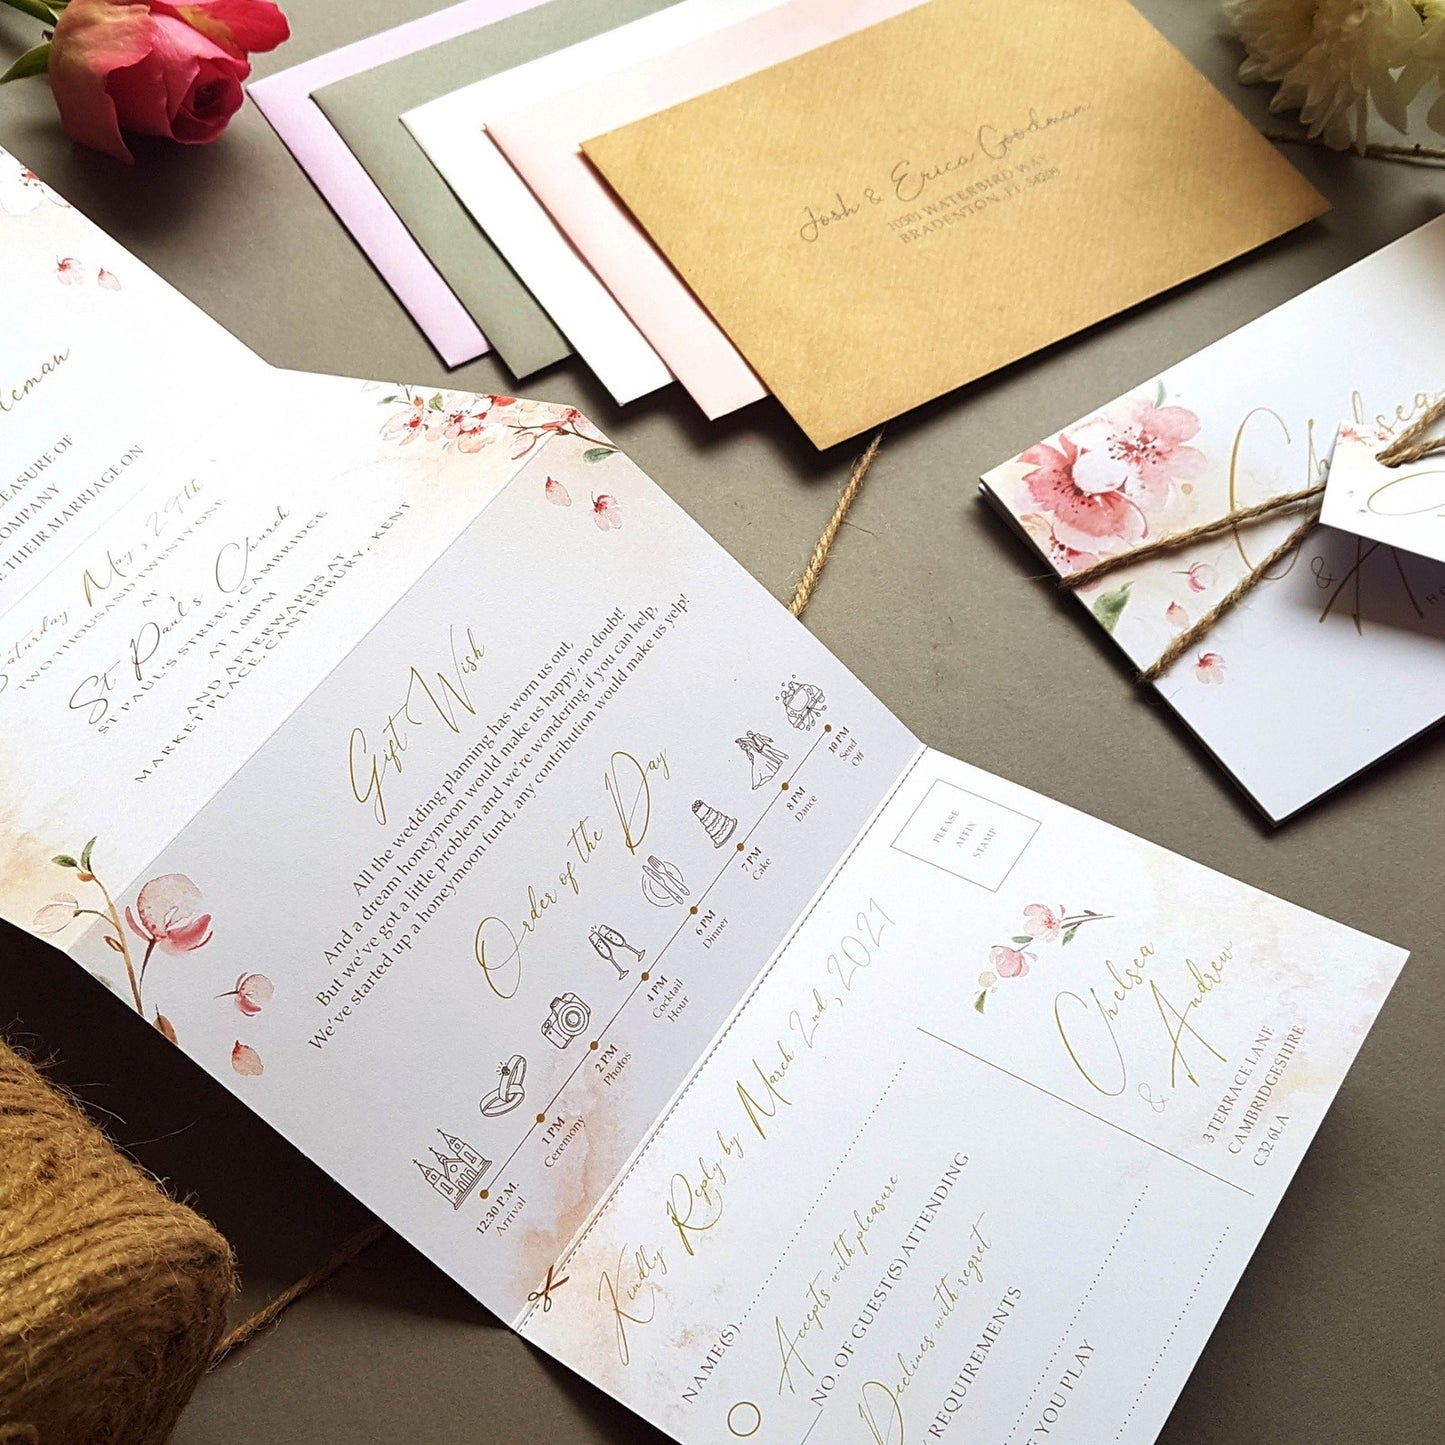 Josh & Erica Goodman
10301 WATERBIRD WAY
BRADENTON, FL 34209
Chelsea
&
EASURE OF
COMPANY
THEIR MARRIAGE ON
Saturday May, 29th
TWO THOUSAND TWENTY ONE
AT
St Paul's Church
ST PAUL'S STREET, CAMBRIDGE
AT 1.00PM
AND AFTERWARDS AT
MARKET PLACE, CANTERBURY, KENT
Gift Wish
All the wedding planning has worn us out,
And a dream honeymoon would make us happy, no doubt!
But we've got a little problem and we're wondering if you can help,
We've started up a honeymoon fund, any contribution would make us yelp!
Order of the Day
12:30 P.M.
Arrival
1 PM
Ceremony
2 PM
Photos
4 PM
Cocktail
Hour
6 PM
Dinner
7 PM
Cake
8 PM
Dance
10 PM
Send
Off
PLEASE
AFFIX
STAMP
Kindly Reply by March 2nd, 2021
NAME(S)
Accepts with pleasure
NO. OF GUEST(S) ATTENDING
Declines with regret
REQUIREMENTS
YOU PLAY
Chelsea
& Andrew
3 TERRACE LANE
CAMBRIDGESHIRE
C32 6LA